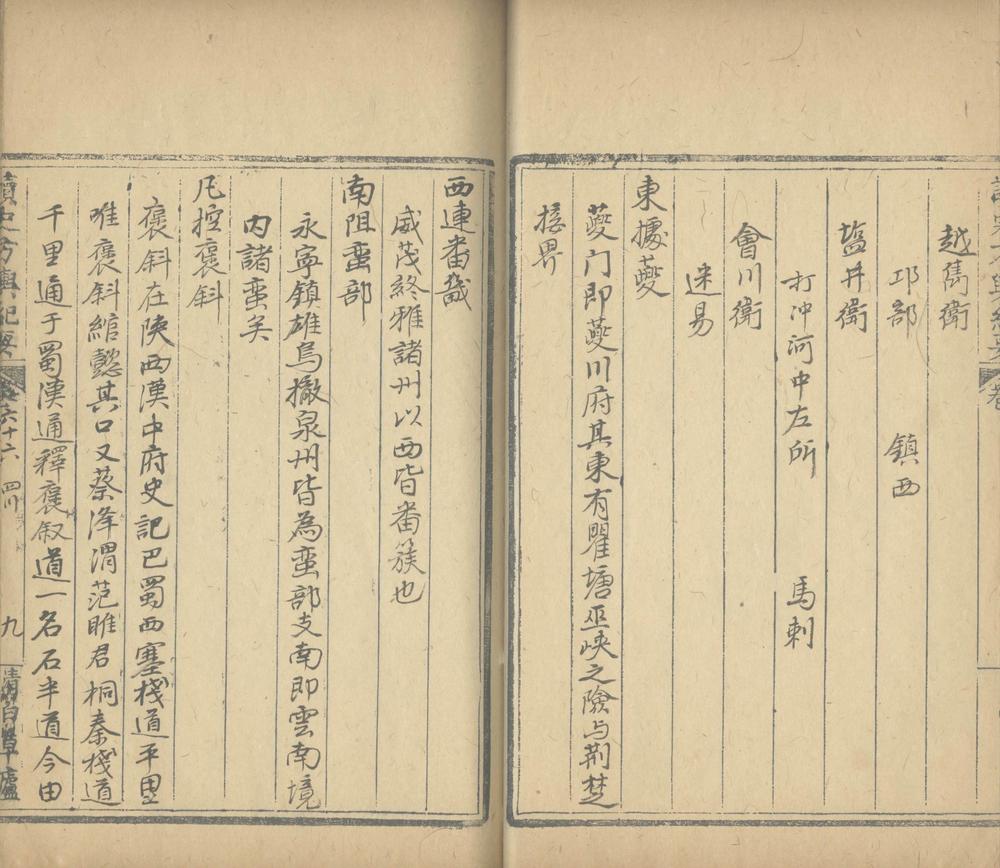 越雋衛
邛部 鎮西
塩井衛
打冲河中左所 馬剌
會川衛
迷易
東據夔
夔门即夔川府其東有瞿塘巫峡之險与荆楚
接界
西連番
威茂終雅諸州以西皆番簇也
南阻蛮部
永寧鎮雄烏撒泉州皆為蛮部支南即雲南境
内諸蛮矣
凡控褒斜
褒斜在陕西漢中府史記巴蜀西塞栈道千里
唯褒斜綰懿其口又蔡泽渭范睢君桐秦栈道
千里通于蜀漢通釋褒叙道一名石半道今由
讀史方輿紀要 卷六十六 四川 九 清白草廬